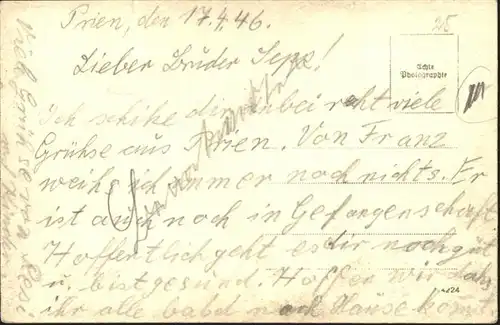 Prien, den 17.4.46.
Lieber Bruder Sepp!
Ich schike dir anbei recht viele
Grühse aus Prien. Von Franz
weihs ich immer noch nichts. Er
ist auch noch in Gefangenschaft
Hoffentlich geht es dir noch gut
u. bist gesund. Hoffen wir dahs
ihr alle babd nach Hause komt
Echte
Photographie
25